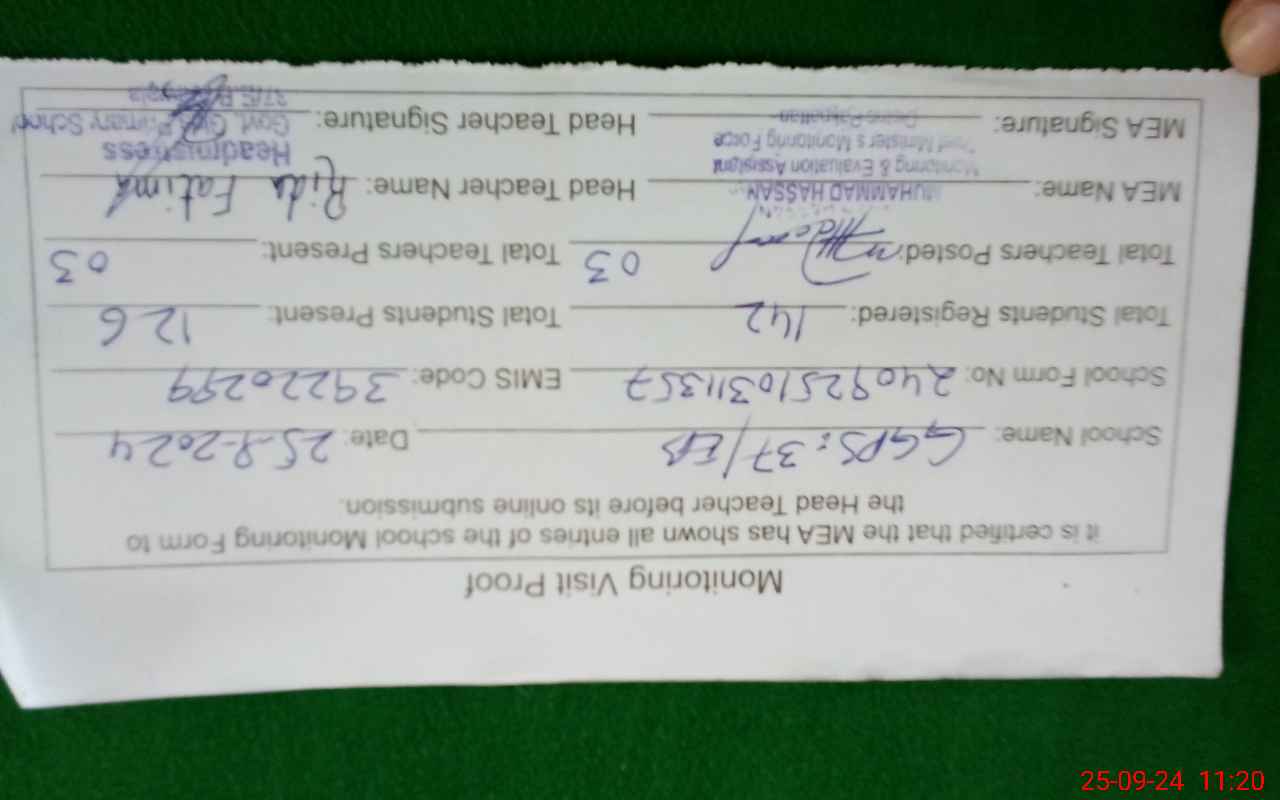 Monitoring Visit Proof
it is certified that the MEA has shown all entries of the school Monitoring Form to
the Head Teacher before its online submission.
School Name: GGPS: 37/EB Date: 25-9-2024
School Form No: 24092510311357 EMIS Code: 39220299
Total Students Registered: 142 Total Students Present: 126
Total Teachers Posted: 03 Total Teachers Present: 03
MEA Name: MUHAMMAD HASSAN Head Teacher Name: Rida Fatima
Monitoring & Evaluation Assistant Headmistress
Chief Minister's Monitoring Force
MEA Signature: Head Teacher Signature: Govt. Girls Primary School
25-09-24 11:20